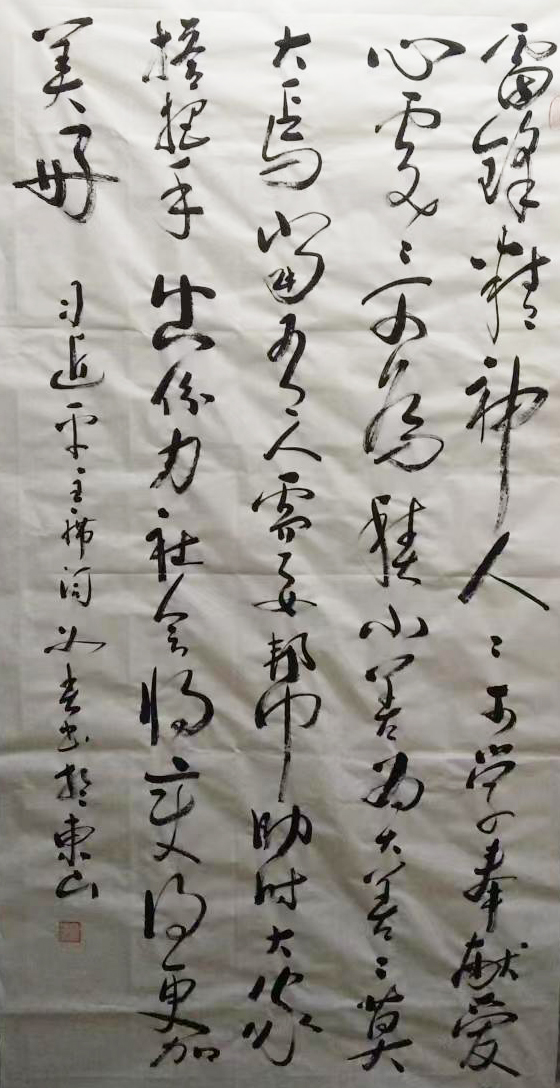 雷锋精神人〻可学奉献爱
心处〻可为积小善为大善〻莫
大焉当有人需要帮助时大家
搭把手出份力社会将变得更加
美好
习近平主席词 春书於東山